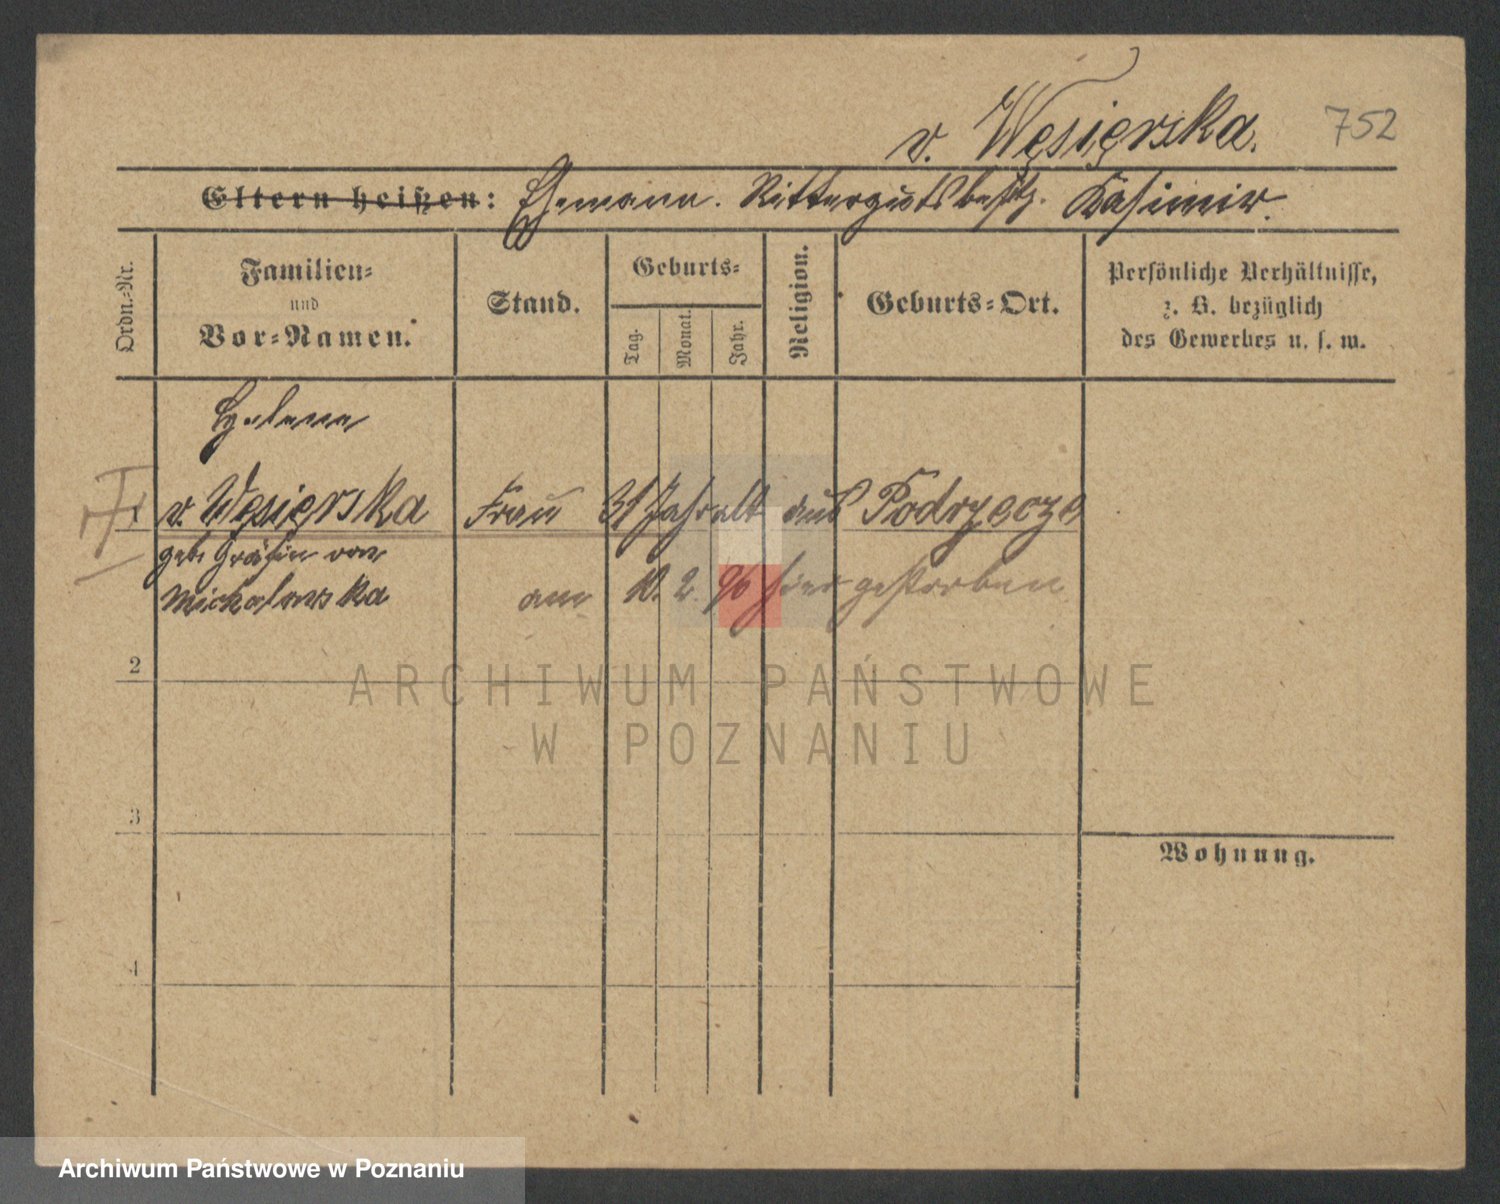 v. Węsierska. 752
Eltern heißen: Ehemann. Rittergutsbesitz. Kasimir.
Ordn.-Nr.
Familien-
und
Vor-Namen.
Stand.
Geburts-
Tag.
Monat.
Jahr.
Religion.
Geburts-Ort.
Persönliche Verhältnisse,
z. B. bezüglich
des Gewerbes u. s. w.
Helene
1 v. Węsierska Frau 31 Jahr alt aus Podrzecze
geb. Gräfin von
Mickalowska am 10. 2. 90 hier gestorben
2
ARCHIWUM PAŃSTWOWE
W POZNANIU
3
Wohnung.
4
Archiwum Państwowe w Poznaniu